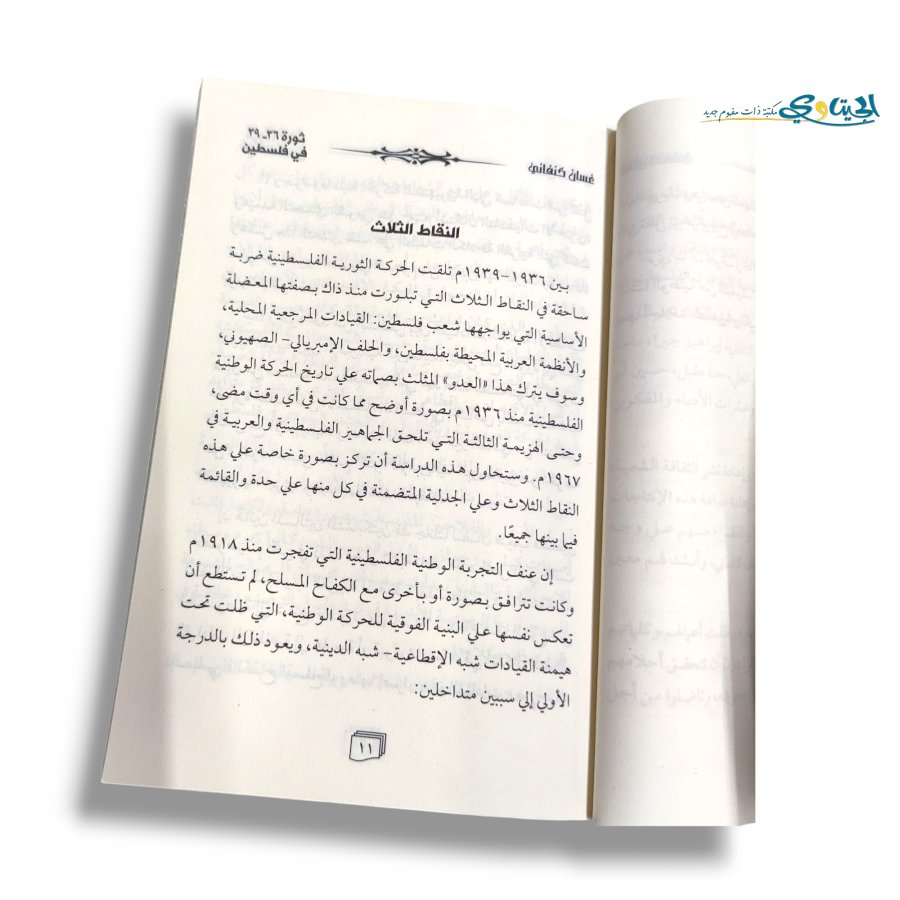 الجيتاوي مكتبة ذات مفهوم جديد
غسان كنفاني
ثورة ٣٦-٣٩
في فلسطين
النقاط الثلاث
بين ١٩٣٦-١٩٣٩م تلقت الحركة الثورية الفلسطينية ضربة
ساحقة في النقاط الثلاث التي تبلورت منذ ذاك بصفتها المعضلة
الأساسية التي يواجهها شعب فلسطين: القيادات المرجعية المحلية،
والأنظمة العربية المحيطة بفلسطين، والحلف الإمبريالي- الصهيوني،
وسوف يترك هذا «العدو» المثلث بصماته علي تاريخ الحركة الوطنية
الفلسطينية منذ ١٩٣٦م بصورة أوضح مما كانت في أي وقت مضى،
وحتى الهزيمة الثالثة التي تلحق الجماهير الفلسطينية والعربية في
١٩٦٧م. وستحاول هذه الدراسة أن تركز بصورة خاصة علي هذه
النقاط الثلاث وعلي الجدلية المتضمنة في كل منها علي حدة والقائمة
فيما بينها جميعًا.
إن عنف التجربة الوطنية الفلسطينية التي تفجرت منذ ١٩١٨م
وكانت تترافق بصورة أو بأخرى مع الكفاح المسلح، لم تستطع أن
تعكس نفسها علي البنية الفوقية للحركة الوطنية، التي ظلت تحت
هيمنة القيادات شبه الإقطاعية- شبه الدينية، ويعود ذلك بالدرجة
الأولي إلي سببين متداخلين:
١١